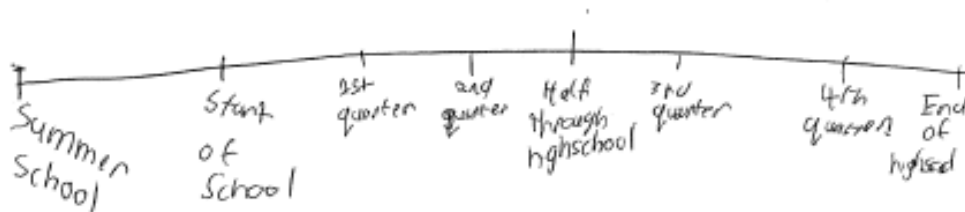 Summer
School
Start
of
School
1st
quarter
2nd
quarter
Half
through
highschool
3rd
quarter
4th
quarter
End
of